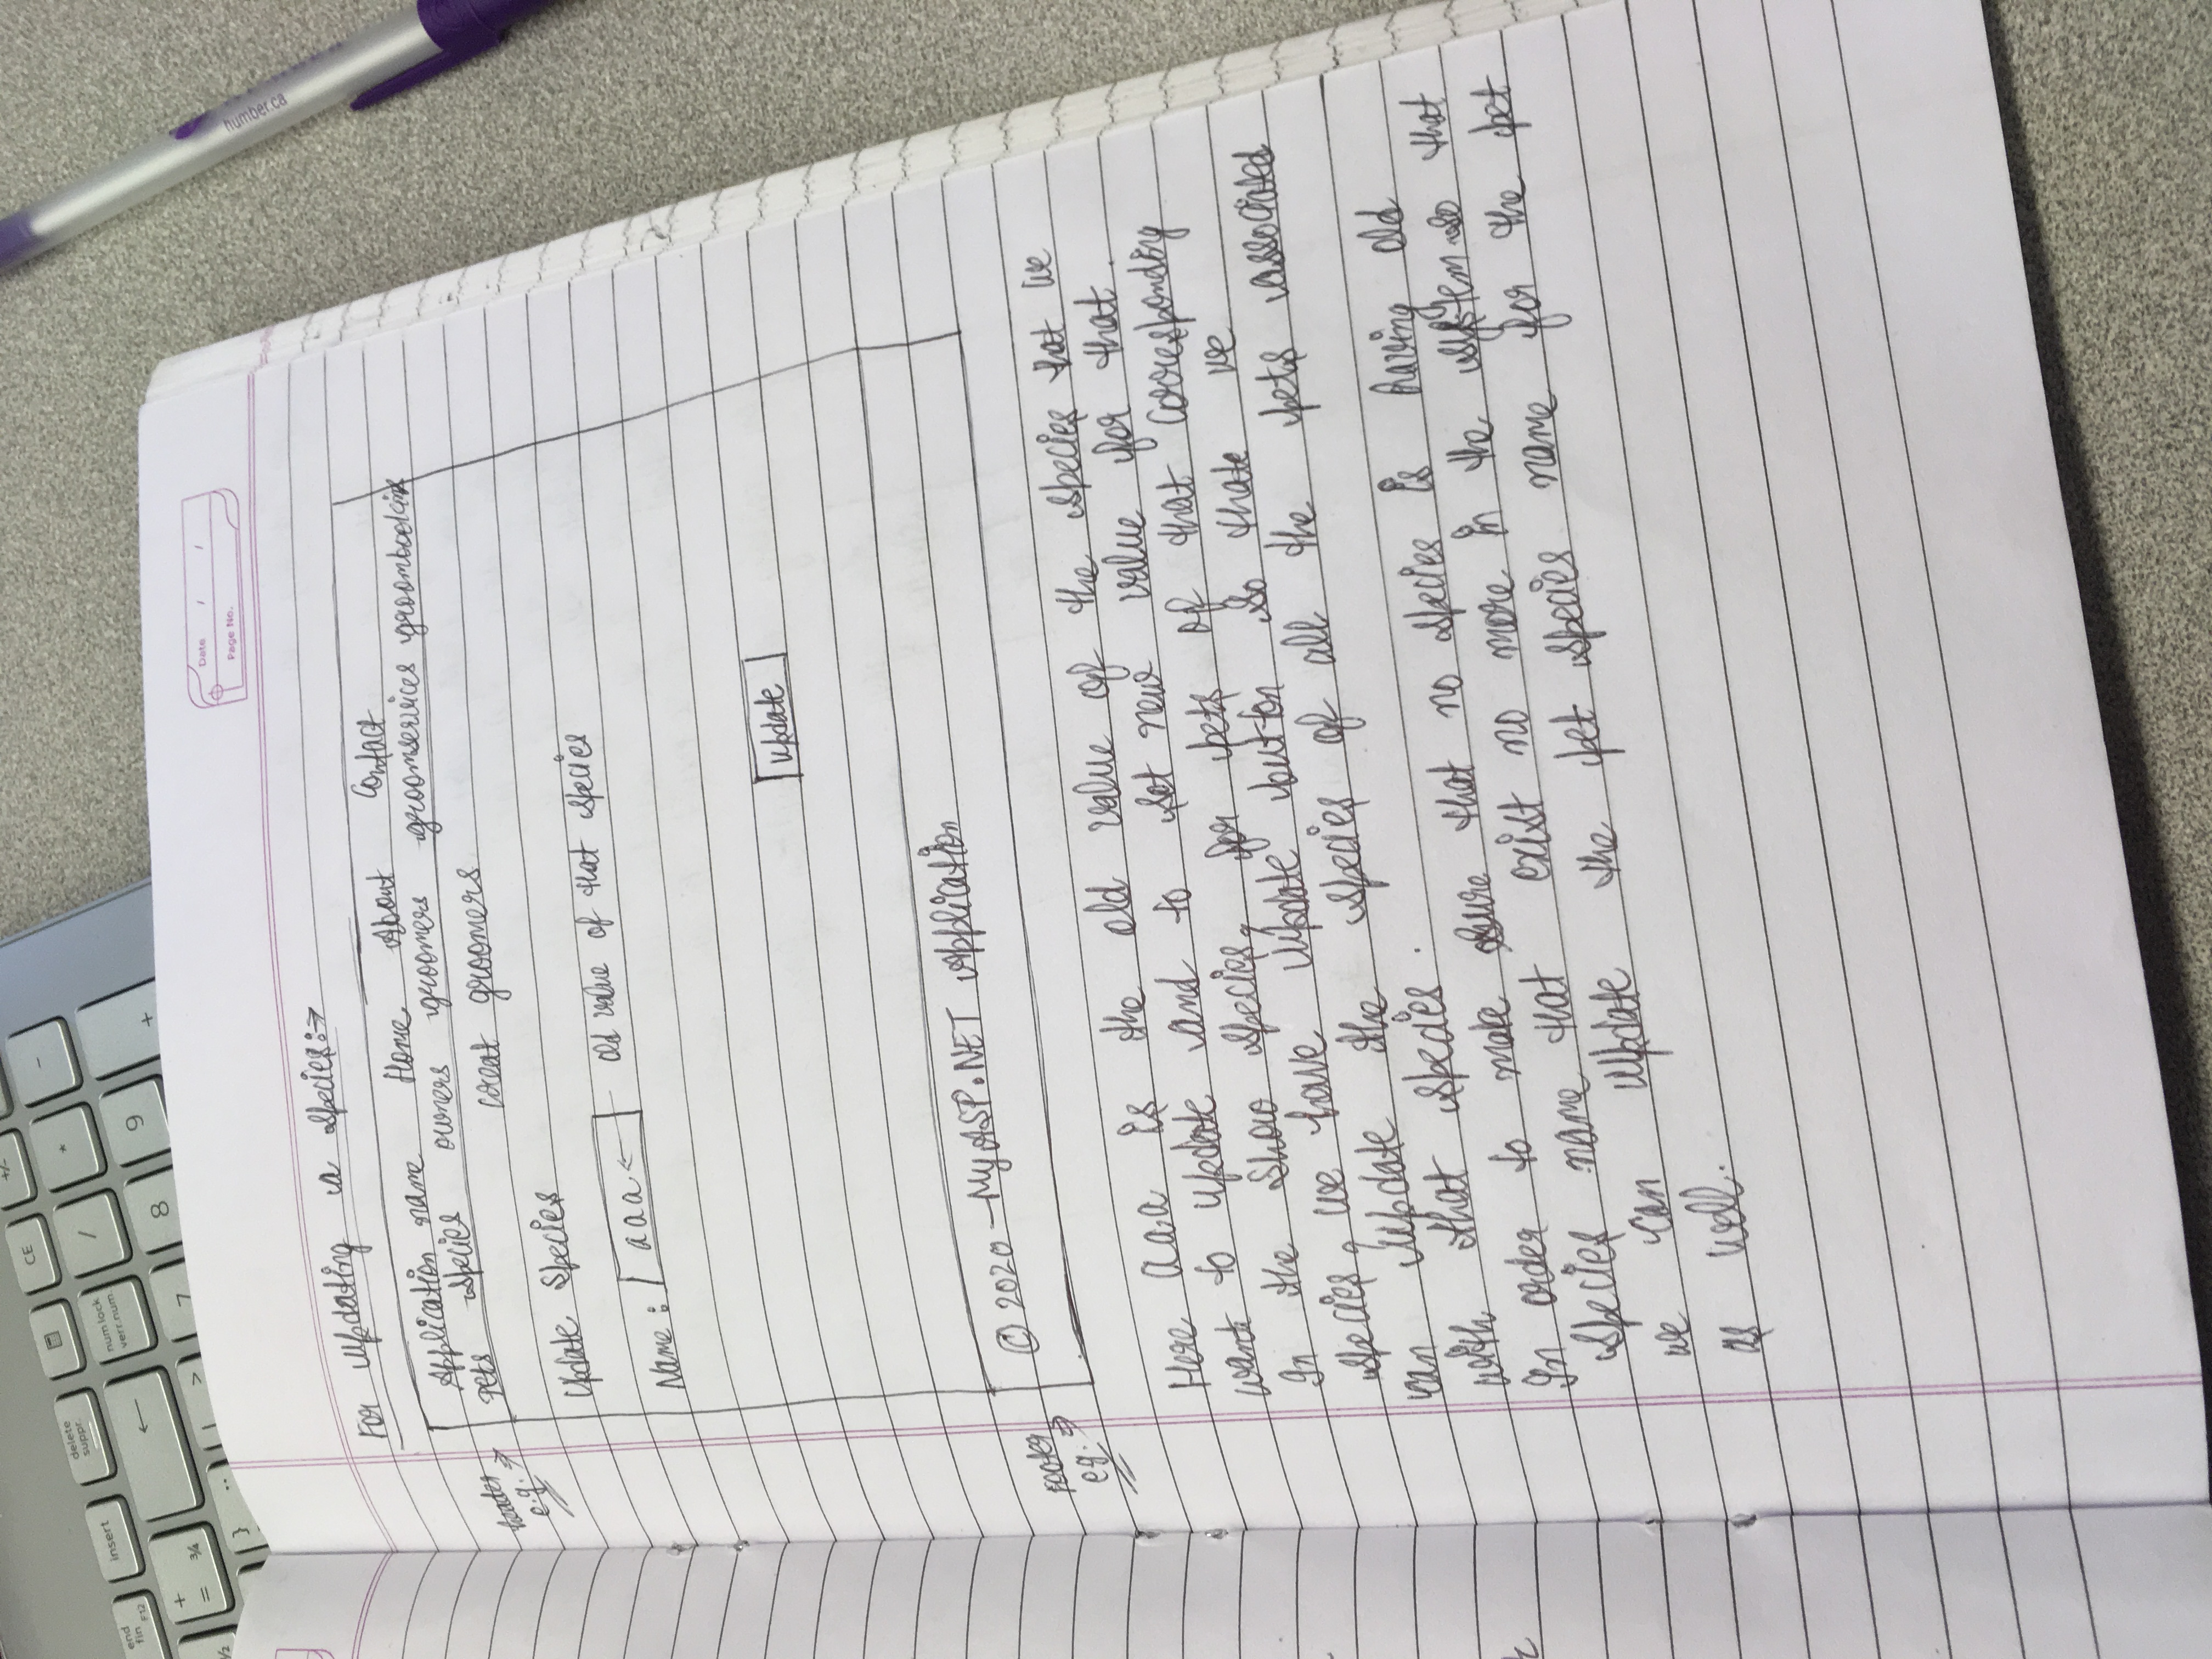 CE
+/-
delete
suppr.
*
-
insert
num lock
verr.num.
/
end
fin F12
←
8
9
+
+
=
¾
7
>
}
Date / /
Page No.
humber.ca
For Updating a species:→
Application name Home About Contact
pets species owners groomers groomservices groombooking
header
e.g. ⇒
creat groomers
Update Species
Name : aaa ← old value of that species
Update
© 2020 - My ASP.NET Application
Footer
eg. ⇒
Here aaa is the old value of the species that we
want to update and to set new value for that.
In the show species, for pets of that corresponding
species, we have update button so thate we
can update the species of all the pets associated
with that species.
In order to make sure that no species is having old
species name that exist no more in the system so that
we can update the pet species name for the pet
as well.